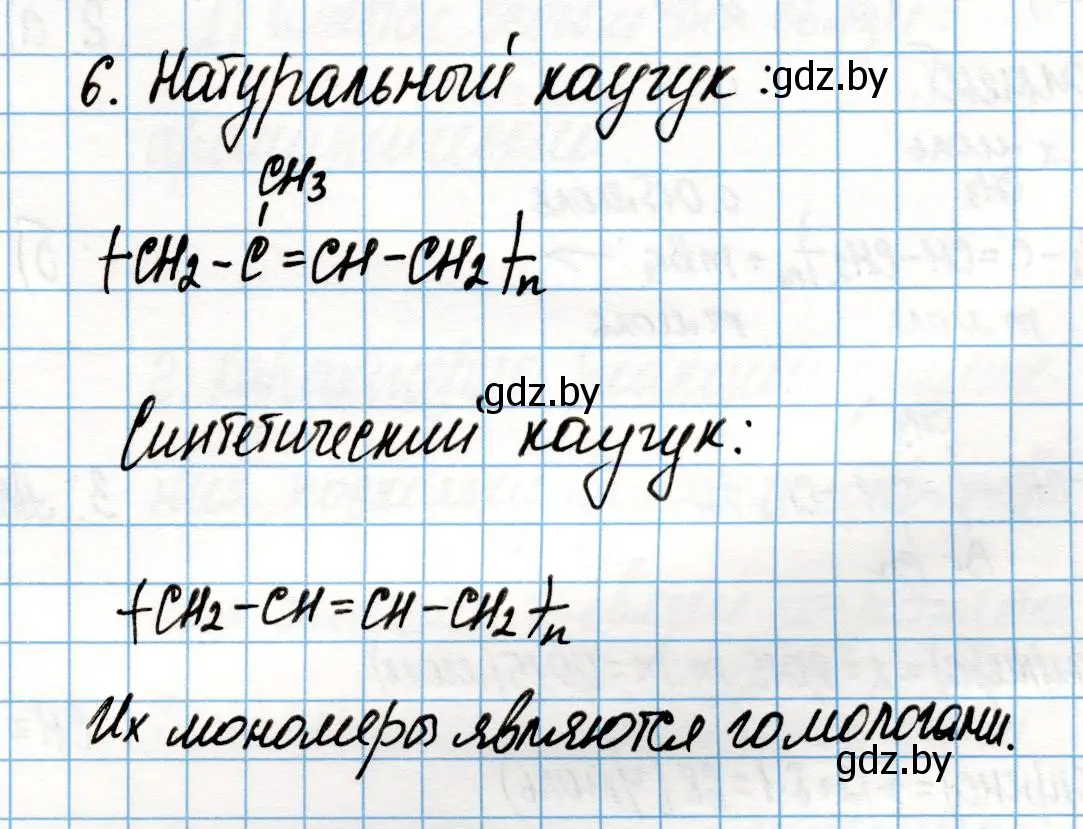 6. Натуральный каучук :
gdz.by
CH3
(-CH2-C=CH-CH2-)n
gdz.by
Синтетический каучук:
(-CH2-CH=CH-CH2-)n
Их мономеры являются гомологами.
gdz.by